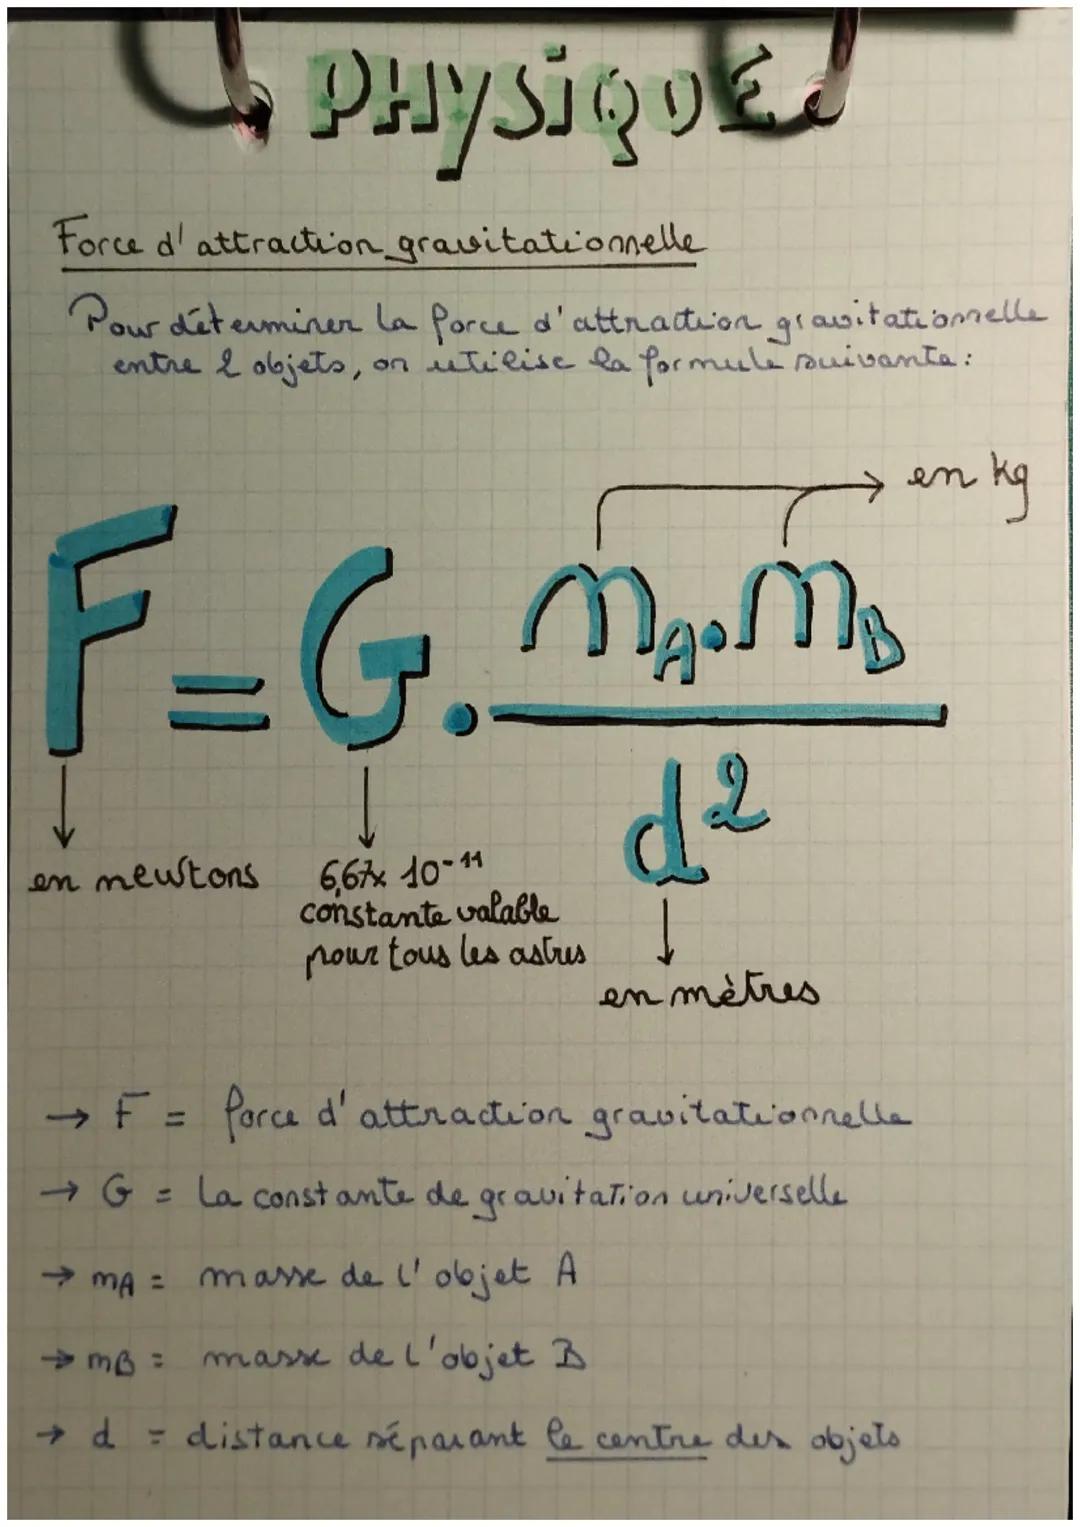 PHYSIQUE
Force d'attraction gravitationnelle
Pour déterminer la force d'attraction gravitationnelle
entre 2 objets, on utilise la formule suivante :
en kg
F = G . mA . mB
d²
en newtons
6,67x 10-11
constante valable
pour tous les astres
en mètres
→ F = force d'attraction gravitationnelle
→ G = la constante de gravitation universelle
→ mA = masse de l'objet A
→ mB = masse de l'objet B
→ d = distance séparant le centre des objets